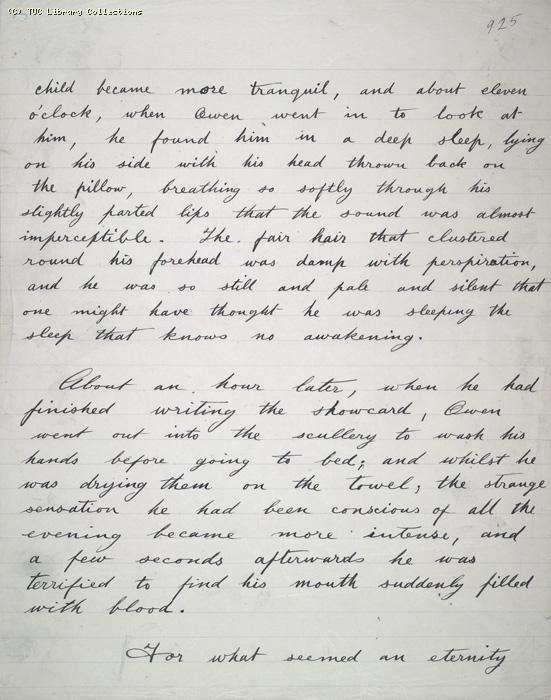 (C) TUC Library Collections
925
child became more tranquil, and about eleven
o'clock, when Owen went in to look at
him, he found him in a deep sleep, lying
on his side with his head thrown back on
the pillow, breathing so softly through his
slightly parted lips that the sound was almost
imperceptible. The fair hair that clustered
round his forehead was damp with perspiration,
and he was so still and pale and silent that
one might have thought he was sleeping the
sleep that knows no awakening.
About an hour later, when he had
finished writing the showcard, Owen
went out into the scullery to wash his
hands before going to bed; and whilst he
was drying them on the towel, the strange
sensation he had been conscious of all the
evening became more intense, and
a few seconds afterwards he was
terrified to find his mouth suddenly filled
with blood.
For what seemed an eternity